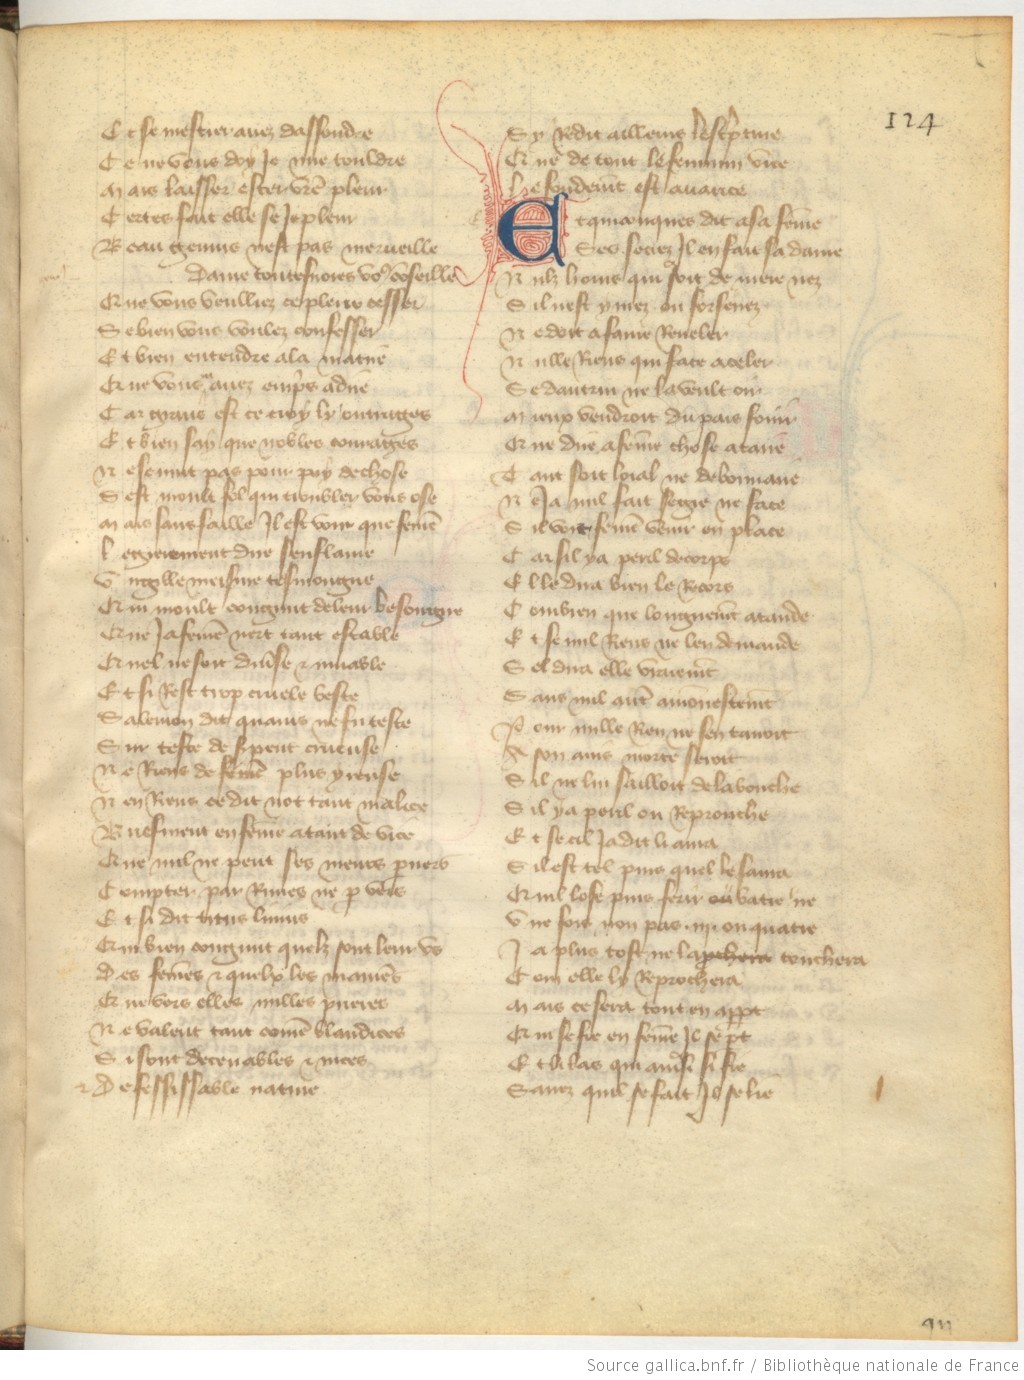 124
Et se mestier avez dassondre
Ce ne vous doy Je mie touldre
Mais laisser ester vr̃e pleur
Certes fait elle se Je pleur
Beau genius nest pas merueille
Dame toutesuoies vo9 cõseille
Que vous veulliez ce pleur cesser
Se bien vous voulez confesser
Et bien entendre a la matiẽ
Que vous mauez
Car grans est ce croy ly oultrages
Et bien say que nobles courages
Ne se muet pas pour poy de chose
Sest moult fol qui troubler vous ose
Mais sans faille Il est voir que femẽ
Legierement dire senflame
Virgille meisme tesmoingne
Qui moult congnut de leur besoingne
Que Ja femẽ niert tant estable
Quel ne soit diuerse z muable
Et si Rest trop cruele beste
Salemon dit quainis ne fu teste
Sur teste de sp̃ent crueuse
Ne Riens de femẽ plus yreuse
Nen Riens ce dit not tant malice
Briefment en fẽme a tant de vice
Que nul ne peut ses meurs p̱uers
Compter par Rimes ne p̱ vers
Et si dit titus liuius
Qui bien congnut quelz sont leur vs
Des femẽs z quelx les manieẽs
Que vers elles nulles prieres
Ne valent tant comẽ blandices
Si sont deceuables z nices
z De flessissable nature
Sy Redit ailleurs lescp̃ture
Que de tout le femenin vice
Le fondemẽt est auarice
Et quiconques dit a sa fẽme
Ses secrez Il en fait sa dame
Nulz homs qui soit de mere nez
Sil nest yurez ou forsenez
Ne doit a fame Reueler
Nulle Riens qui face a celer
Se dautrui ne la veult oir
Mieux vendroit du pais fouir
Que dire a femẽ chose a taire
Tant soit loial ne debonnaire
Ne Ja nul fait secre ne face
Sil voit femẽ venir en place
Car sil y a peril de corps
Elle dira bien le Recors
Combien que longuemẽt atande
Et se nul Riens ne len demande
Sel dira elle vraiemẽt
Sans nul autẽ amonestemẽt
Pour nulle Rien ne sen tairoit
A son auis morte seroit
Sil ne lui sailloit de la bouche
Sil y a peril ou Reprouche
Et se cil Ja dit li aura
Sil est tel puis quel le saura
Quil lose puis ferir ou batre
Vne foiz non pas .iii. ou quatre
Ja plus tost ne la touchera
Com elle ly Reprochera
Mais ce sera tout en app̱t
Qui se fie en femẽ Il se p̱t
Et li las qui en li si fie
Sauez quil se fait Il se lie
Source gallica.bnf.fr / Bibliothèque nationale de France